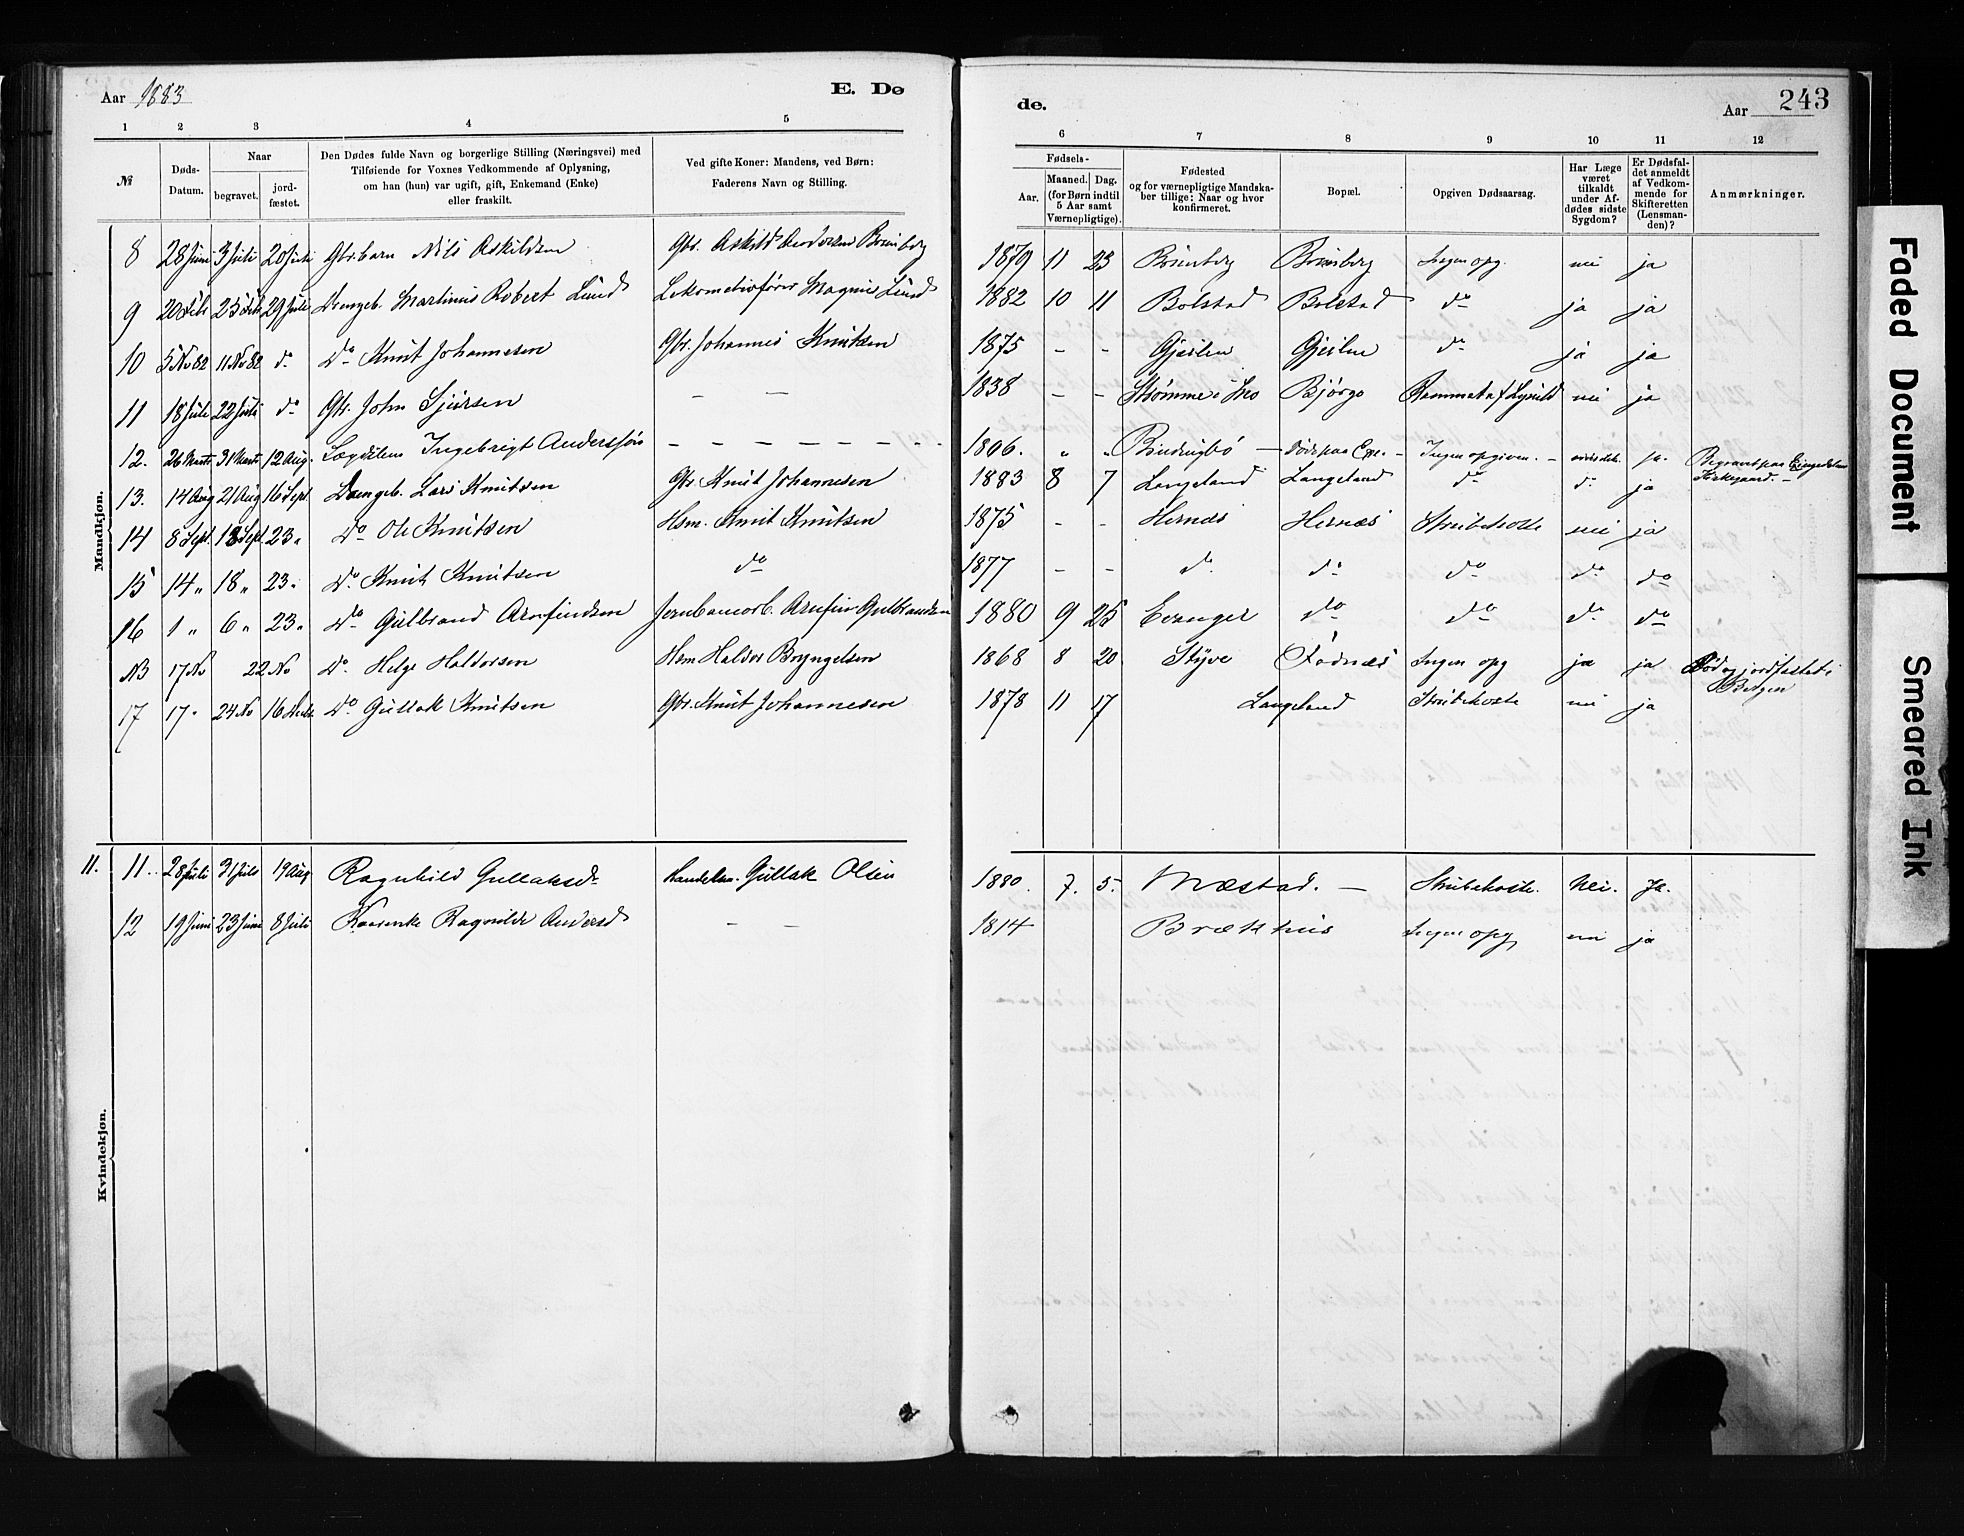 Aar 1883 E. Dø
de. Aar 243
1 2 3 4 5
6 7 8 9 10 11 12
№ Døds-Datum. Naar begravet. jord-fæstet. Den Dødes fulde Navn og borgerlige Stilling (Næringsvei) med Tilføiende for Voxnes Vedkommende af Oplysning, om han (hun) var ugift, gift, Enkemand (Enke) eller fraskilt. Ved gifte Koner: Mandens, ved Børn: Faderens Navn og Stilling.
Fødsels- Aar. Maaned. Dag. (for Børn indtil 5 Aar samt Værnepligtige). Fødested og for værnepligtige Mandska-ber tillige: Naar og hvor konfirmeret. Bopæl. Opgiven Dødsaarsag. Har Læge været tilkaldt under Af-dødes sidste Sygdom? Er Dødsfal-det anmeldt af Vedkom-mende for Skifteretten (Lensman-den)? Anmærkninger.
Mandkjøn.
8 28 Juni 3 Juli 20 Juli Gbr. barn Nils Askildsen Gbr. Askild Andersen 1879 11 23 Ingen opg. nei ja
9 20 Febr 25 Febr 29 Juli Drengeb. Martinus Robert Lund Lokomotivfører Magnus Lund 1882 10 11 Bolstad Bolstad do ja ja
10 5 No 82 11 No 82 do Do Knut Johannesen Gbr. Johannes Knutsen 1875 - - Gjeilen Gjeilen do ja ja
11 18 Juli 22 Juli do Gbr. John Sjursen - - 1838 - - Strømme i Mo Bjørgo Rammet af Lynild nei ja
12. 26 Marts 31 Marts 12 Aug. Lægdslem Ingebrigt Anderssøn - - - - - - - 1806. " " Døds paa Ingen opgiven. ja. Begravet paa Kirkegaard.
13. 14 Aug 21 Aug 16 Sept. Drengeb. Lars Knutsen Gbr. Knut Johannesen 1883 8 7 Langeland Langeland do do ja
14 8 Sept. 18 Sept 23 " Do Ole Knutsen Hsm. Knut Knutsen 1875 - - Hernes Hernæs Strubehoste nei ja
15 14 " 18 " 23 " Do. Knut Knutsen do 1877 - - do do do do do
16 1 " 6 " 23 " Do Gulbrand Arnfindsen Jernbanearb. Arnfin Gulbrandsen 1880 9 25 Evanger do do do do
NB 17 No 22 No Do. Helge Haldorsen Hsm Haldor Bryngelsen 1868 8 20 Styve Fodnæs Ingen opg ja ja Død og jordfæstet i Bergen
17 17 " 24 No 16 Do. Gullak Knutsen Gbr. Knut Johannesen 1878 11 17 Langeland Strubehoste nei ja
Kvindekjøn.
11. 11.. 28 Juli 31 Juli 19 Aug Ragnhild Gullaksdr Handelsm. Gullak Olsen 1880. 7. 5. Mæstad. - Strubehoste. Nei. Ja.
12 19 Juni 23 Juni 8 Juli Ragnilde Andersd - - 1814 Brækhus Ingen opg nei ja
Faded Document
Smeared Ink